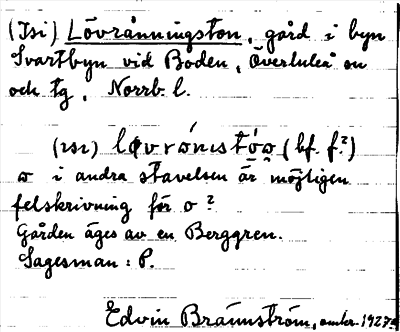 (Isi) Lövrånningston, gård i byn
Svartbyn vid Boden, Överluleå sn
och tg, Norrb. l.
(isi) (bf. f.?)
i andra stavelsen är möjligen
felskrivning för o?
Gården äges av en Berggren.
Sagesman: P.
Edvin Brännström, 1927.